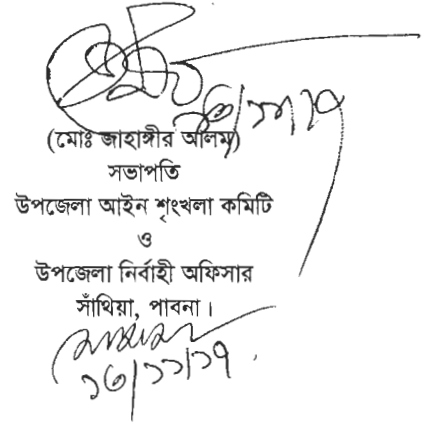 (মোঃ জাহাঙ্গীর আলম)
সভাপতি
উপজেলা আইন শৃংখলা কমিটি
ও
উপজেলা নির্বাহী অফিসার
সাঁথিয়া, পাবনা।
১৩/১১/১৭